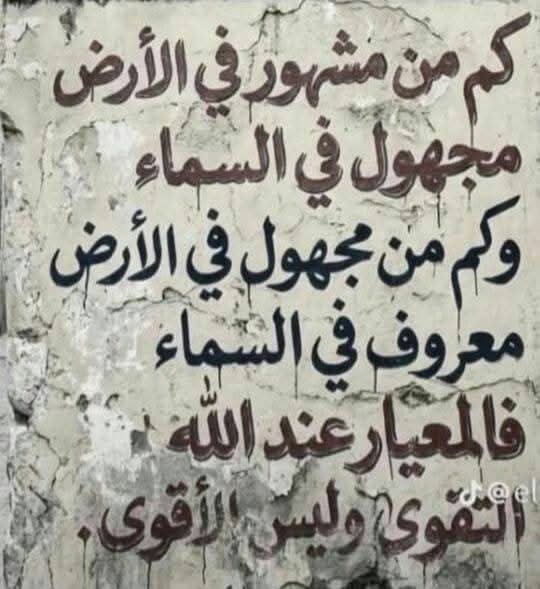 كم من مشهور في الأرض
مجهول في السماءِ
وكم من مجهول في الأرض
معروف في السماء
فالمعيار عند الله
@el
التقوى وليس الأقوى.